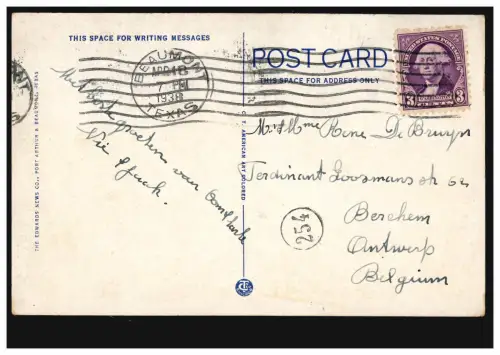 THIS SPACE FOR WRITING MESSAGES
POST CARD
THIS SPACE FOR ADDRESS ONLY
BEAUMONT
7 PM
TEXAS
UNITED STATES POSTAGE
3 3
THE EDWARDS NEWS CO., PORT ARTHUR & BEAUMONT, TEXAS
C. T. AMERICAN ART COLORED
Met beste groeten van
Mr & Mme Rene De Bruyn
Ferdinand Coosmans str 62
Berchem
Antwerp
Belgium
254